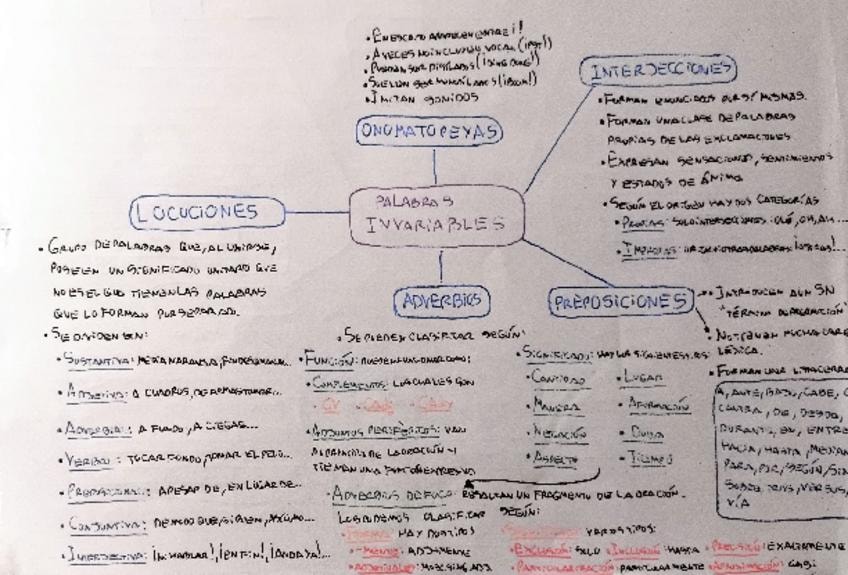 • EN ESCRITO APARECEN ENTRE ¡!
• A VECES NO INCLUYEN VOCAL (¡PST!)
• PUEDEN SER (¡DING DONG!)
• SUELEN SER MONOSÍLABOS (¡BOOM!)
• IMITAN SONIDOS
ONOMATOPEYAS
INTERJECCIONES
• FORMAN ENUNCIADOS POR SÍ MISMAS.
• FORMAN UNA CLASE DE PALABRAS
PROPIAS DE LAS EXCLAMACIONES.
• EXPRESAN SENSACIONES, SENTIMIENTOS
Y ESTADOS DE ÁNIMO
• SEGÚN EL ORIGEN HAY DOS CATEGORÍAS
• PROPIAS: SOLO INTERJECCIONES: OLÉ, OH, AH...
• IMPROPIAS: OTRAS PALABRAS
PALABRAS
INVARIABLES
LOCUCIONES
• GRUPO DE PALABRAS QUE, AL UNIRSE,
POSEEN UN SIGNIFICADO UNITARIO QUE
NO ES EL QUE TIENEN LAS PALABRAS
QUE LO FORMAN POR SEPARADO.
• SE DIVIDEN EN:
• SUSTANTIVA: MEDIA NARANJA, FIN DE SEMANA...
• ADJETIVA: A CUADROS, DE ARMAS TOMAR...
• ADVERBIAL: A FONDO, A CIEGAS...
• VERBAL: TOCAR FONDO, TOMAR EL PELO...
• PREPOSICIONAL: A PESAR DE, EN LUGAR DE...
• CONJUNTIVA: DE MODO QUE, SI BIEN, ASÍ COMO...
• INTERJECTIVA: ¡NI HABLAR!, ¡EN FIN!, ¡ANDA YA!...
ADVERBIOS
• SE PUEDEN CLASIFICAR SEGÚN:
• FUNCIÓN: PUEDEN FUNCIONAR COMO:
• COMPLEMENTOS: LOS CUALES SON
• CV • CADJ • CADV
• ADJUNTOS PERIFÉRICOS: VAN
AL PRINCIPIO DE LA ORACIÓN Y
TIENEN UNA FUNCIÓN EXPRESIVA
• SIGNIFICADO: HAY LOS SIGUIENTES TIPOS:
• CANTIDAD • LUGAR
• MANERA • AFIRMACIÓN
• NEGACIÓN • DUDA
• ASPECTO • TIEMPO
• ADVERBIOS DE FOCO: RESALTAN UN FRAGMENTO DE LA ORACIÓN.
LOS PODEMOS CLASIFICAR SEGÚN:
• FORMA: HAY DOS TIPOS
• -MENTE: ADJ+MENTE
• ADJETIVALES: MASC. SING. ADJ.
• SIGNIFICADO: VARIOS TIPOS:
• EXCLUSIÓN: SOLO • INCLUSIÓN: HASTA • PRECISIÓN: EXACTAMENTE
• PARTICULARIZACIÓN: PARTICULARMENTE • APROXIMACIÓN: CASI
PREPOSICIONES
• INTRODUCEN A UN SN
"TÉRMINO DE PREPOSICIÓN"
• NO TIENEN MUCHA CARGA
LÉXICA.
• FORMAN UNA LISTA CERRADA
A, ANTE, BAJO, CABE, C
CONTRA, DE, DESDE,
DURANTE, EN, ENTRE
HACIA, HASTA, MEDIAN
PARA, POR, SEGÚN, SIN
SOBRE, TRAS, VERSUS,
VÍA